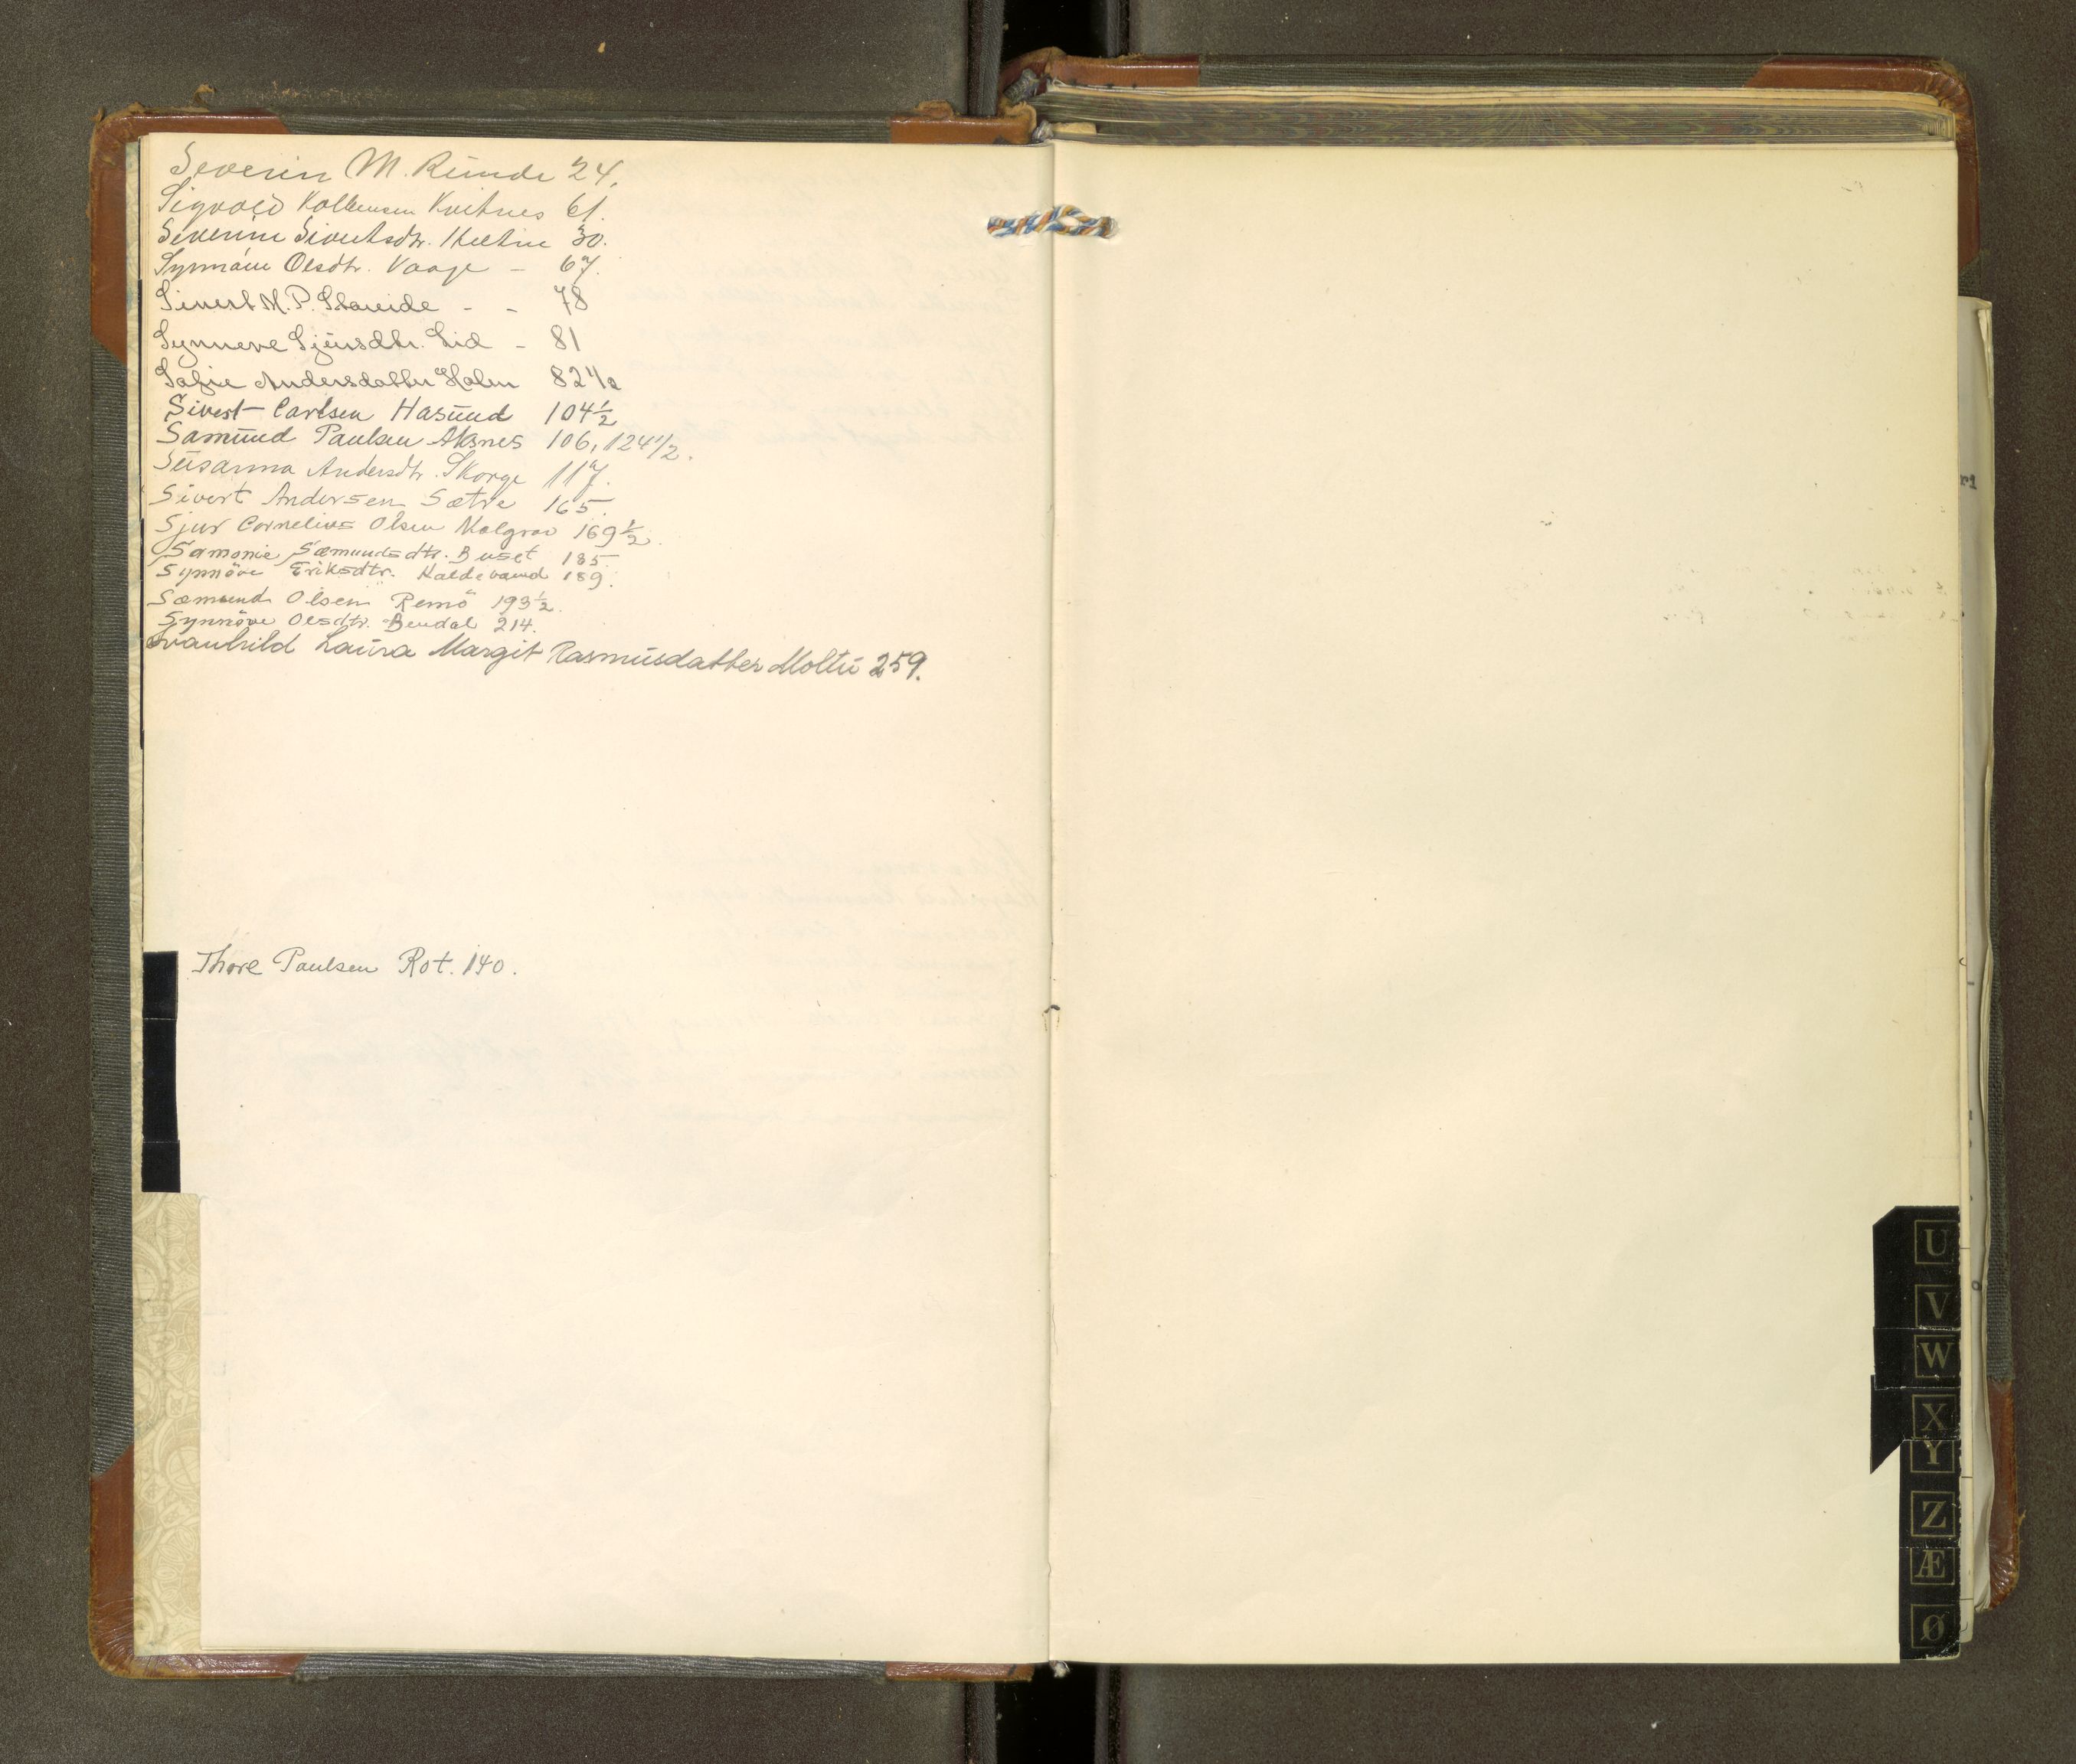 Severin M. Runde 24.
Sigvald Kolbensen Kvitnes 61.
Severine Sivertsdtr. 30.
Synnøve Olsdtr. Vaage - 67.
Sivert M. P. Staveide - - 78
Synneve Sjursdtr. Lid - 81
Sofie Andersdatter Holen 82 1/2
Sivert Carlsen Hasund 104 1/2
Samund Paulsen Aksnes 106, 124 1/2.
Susanna Andersdtr. Skorge 117.
Sivert Andersen Sætre 165.
Sjur Cornelius Olsen Kolgrov 169 1/2.
Samonie Sæmundsdtr. Buset 185.
Synnöve Eriksdtr. Koldevand 189.
Sæmund Olsen Remö 193 1/2.
Synnöve Olsdtr. Bendal 214.
Svanhild Laura Margit Rasmusdatter Moltu 259.
Thore Paulsen Rot. 140.
U
V
W
X
Y
Z
Æ
Ø